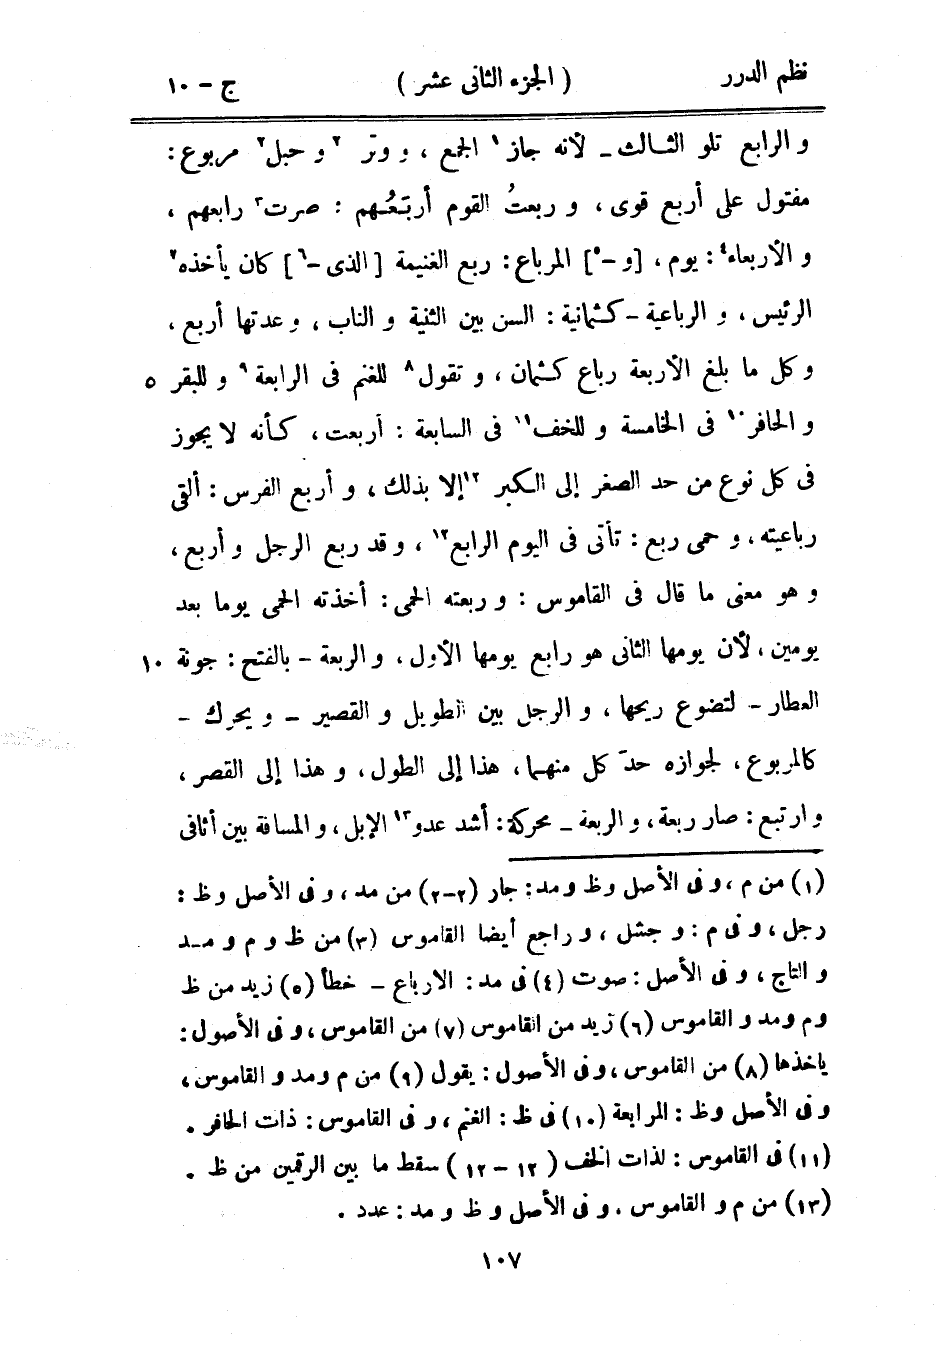 نظم الدرر ( الجزء الثانى عشر ) ج - ١٠
و الرابع تلو الثالث ـ لأنه جاز١ الجمع ، و وتر ٢ و حبل٢ مربوع :
مفتول على أربع قوى ، و ربعتُ القوم أربَعُهم : صرت٣ رابعهم ،
و الأربعاء٤ : يوم ، [ و -٥ ] المرباع : ربع الغنيمة [ الذى -٦ ] كان يأخذه٧
الرئيس ، و الرباعية - كثمانية : السن بين الثنية و الناب ، و عدتها أربع ،
و كل ما بلغ الأربعة رباع كثمان ، و تقول٨ للغنم فى الرابعة ٩ و للبقر ٥
و الحافر١٠ فى الخامسة و للخف١١ فى السابعة : أربعت ، كأنه لا يجوز
فى كل نوع من حد الصغر إلى الكبر ١٢إلا بذلك ، و أربع الفرس : ألقى
رباعيته ، و حمى ربع : تأتى فى اليوم الرابع١٢ ، و قد ربع الرجل و أربع ،
و هو معنى ما قال فى القاموس : و ربعته الحمى : أخذته الحمى يوما بعد
يومين ، لأن يومها الثانى هو رابع يومها الأول ، و الربعة - بالفتح : جونة ١٠
العطار - لتضوع ريحها ، و الرجل بين الطويل و القصير - و يحرك -
كالمربوع ، لجوازه حدّ كل منهما ، هذا إلى الطول ، و هذا إلى القصر ،
و ارتبع : صار ربعة ، و الربعة ـ محركة : أشد عدو١٣ الإبل ، و المسافة بين أثافى
(١) من م ، و فى الأصل و ظ و مد : جار (٢-٢) من مد ، و فى الأصل و ظ :
رجل ، و فى م : و جشل ، و راجع أيضا القاموس (٣) من ظ و م و مد
و التاج ، و فى الأصل : صوت (٤) فى مد : الارباع - خطأ (٥) زيد من ظ
و م و مد و القاموس (٦) زيد من القاموس (٧) من القاموس ، و فى الأصول :
ياخذها (٨) من القاموس ، و فى الأصول : يقول (٩) من م و مد و القاموس ،
و فى الأصل و ظ : المرابعة (١٠) فى ظ : الغنم ، و فى القاموس : ذات الحافر .
(١١) فى القاموس : لذات الخف ( ١٢ - ١٢ ) سقط ما بين الرقمين من ظ .
(١٣) من م و القاموس . و فى الأصل و ظ و مد : عدد .
١٠٧